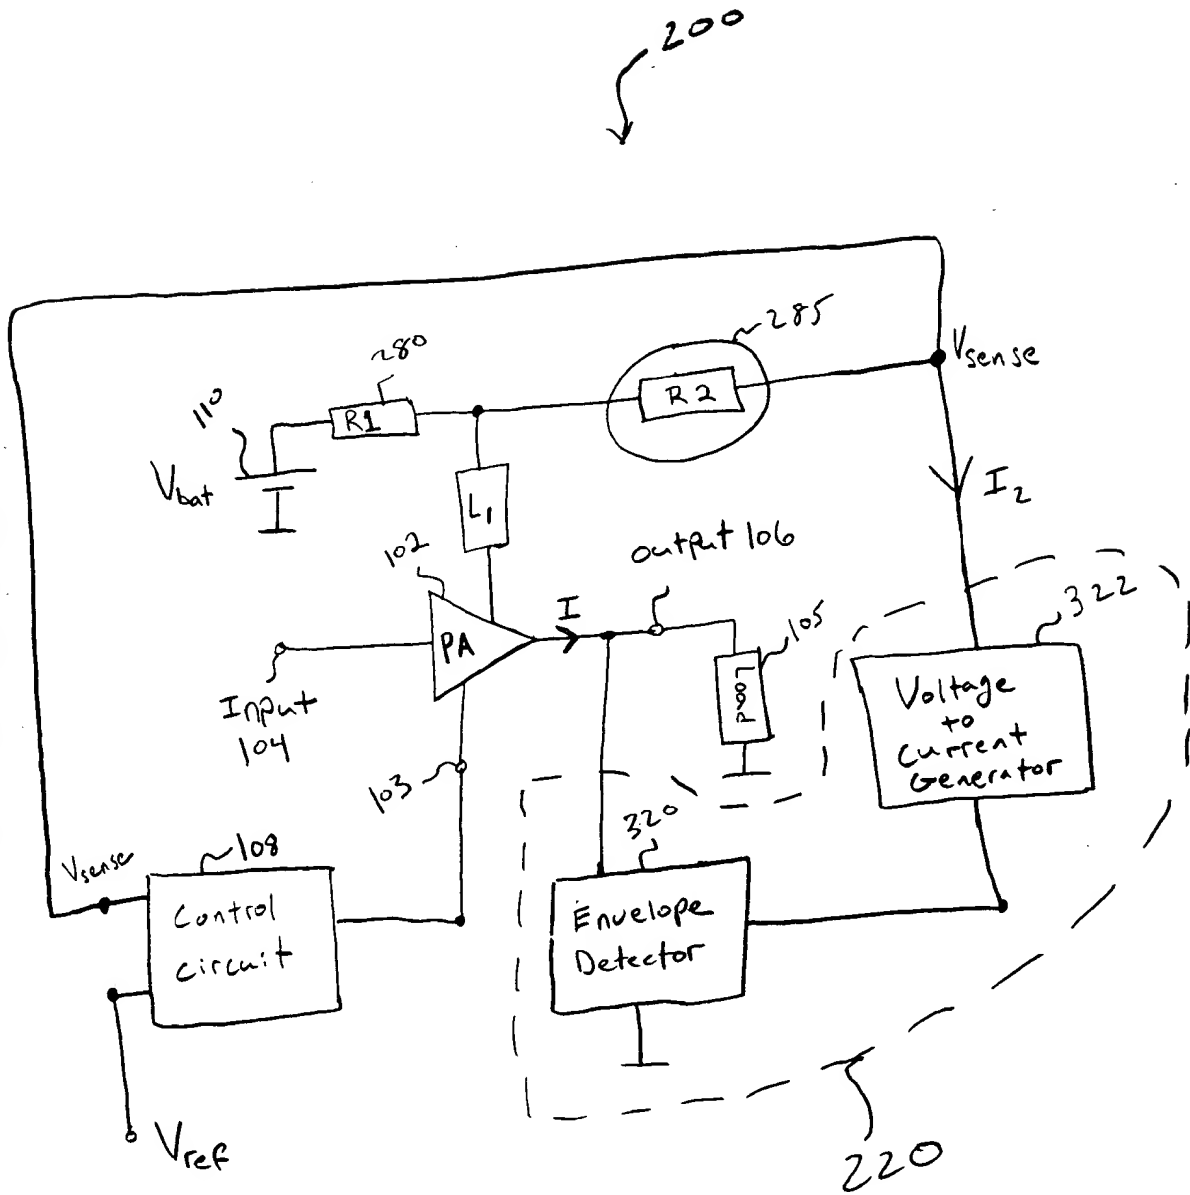 200
285
280
Vsense
110
R1
R2
Vbat
L1
I2
102
output 106
322
I
105
PA
Load
Input
104
Voltage
to
Current
Generator
103
320
108
Vsense
Control
circuit
Envelope
Detector
Vref
220